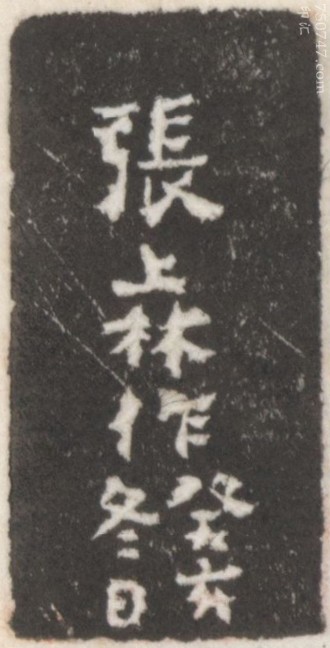 張上林作
癸亥
冬日